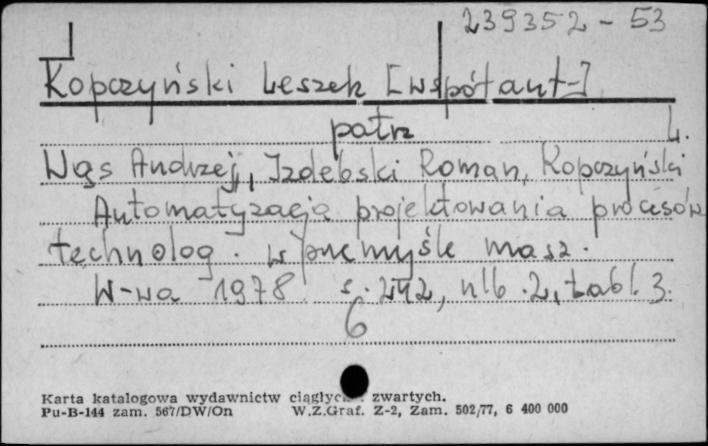 239352-53
Kopczyński Leszek [współaut-]
patrz
Wąs Andrzej, Izdebski Roman, Kopczyński L.
Automatyzacja projektowania procesów
technolog. w przemyśle masz.
W-wa 1978 s. 242, nlb. 2, tabl. 3.
6
Karta katalogowa wydawnictw ciągłych zwartych.
Pu-B-144 zam. 567/DW/On W.Z.Graf. Z-2, Zam. 502/77, 6 400 000